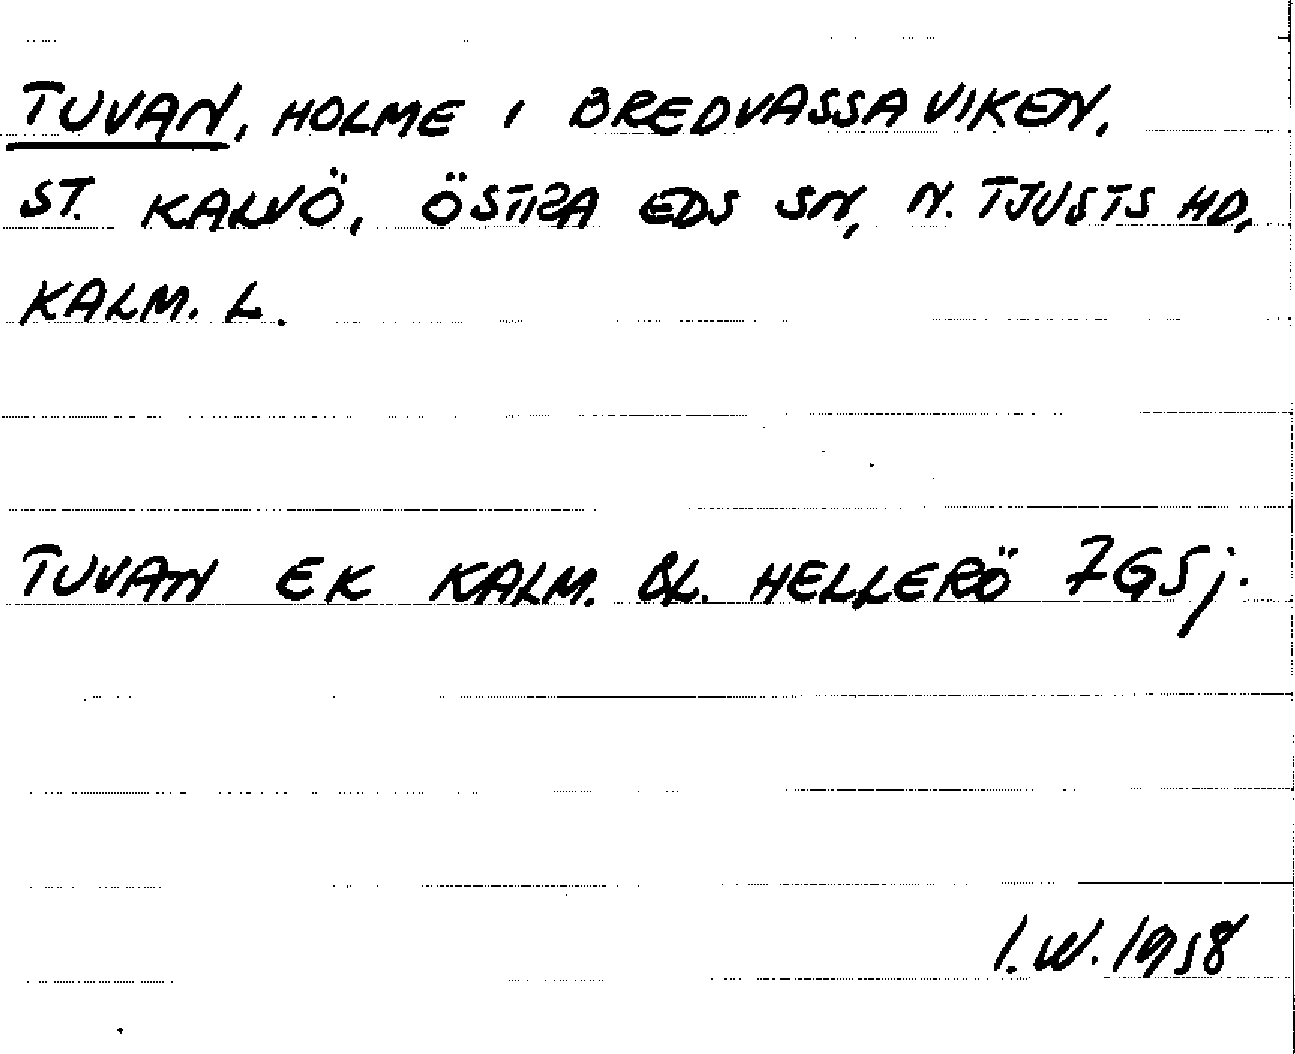 TUVAN, HOLME I BREDVASSAVIKEN,
ST. KALVÖ, ÖSTRA EDS SN, N. TJUSTS HD,
KALM. L.
TUVAN EK KALM. BL. HELLERÖ 7G5j.
I.W. 1958